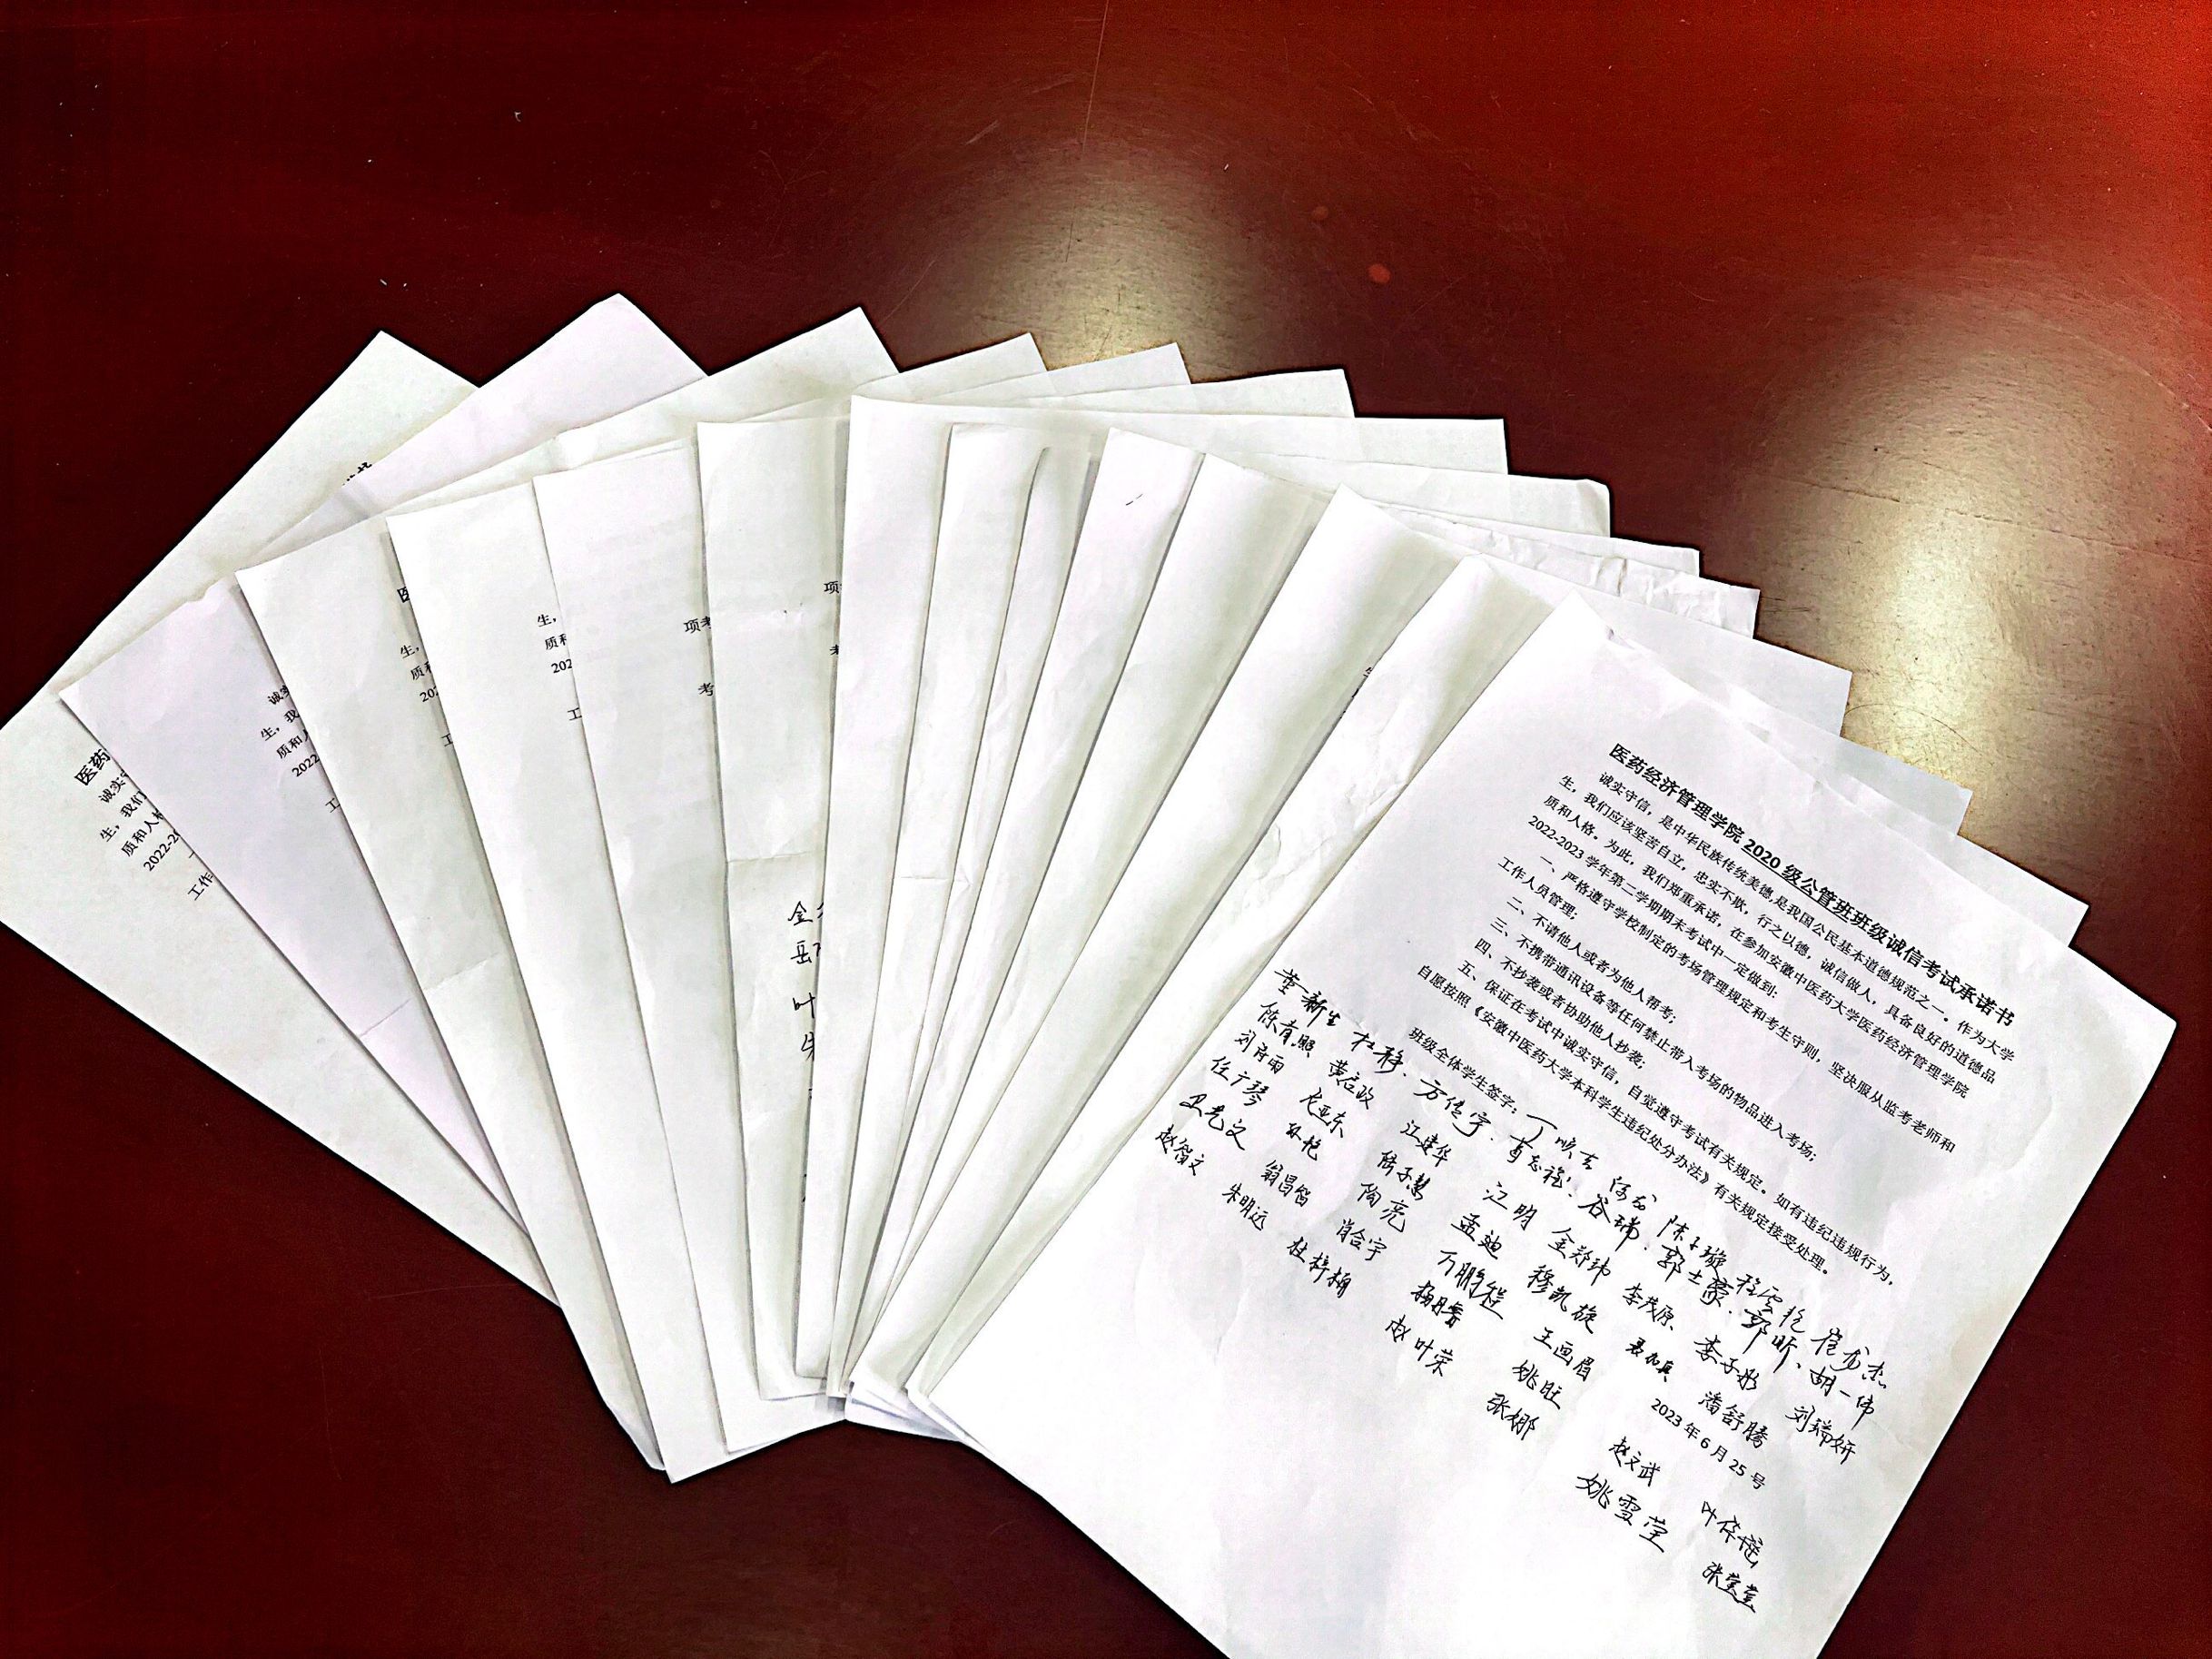 医药经济管理学院 2020 级公管班班级诚信考试承诺书
诚实守信，是中华民族传统美德,是我国公民基本道德规范之一。作为大学
生，我们应该坚苦自立，忠实不欺，行之以德，诚信做人，具备良好的道德品
质和人格。为此，我们郑重承诺，在参加安徽中医药大学医药经济管理学院
2022-2023 学年第二学期期末考试中一定做到:
一、严格遵守学校制定的考场管理规定和考生守则，坚决服从监考老师和
工作人员管理;
二、不请他人或者为他人帮考;
三、不携带通讯设备等任何禁止带入考场的物品进入考场;
四、不抄袭或者协助他人抄袭;
五、保证在考试中诚实守信，自觉遵守考试有关规定。如有违纪违规行为，
自愿按照《安徽中医药大学本科学生违纪处分办法》有关规定接受处理。
班级全体学生签字:
丁顺吉 陈子璇 程雲悦 崔龙杰
董新生 杜移、方传宇、葛志程、谷瑞、郭士豪、郭昕、胡一伟
陈育照 黄启政 江建华 江明 金郑玮 李茂原 李子彤 刘瑞妍
刘府雨 尼亚东 陶亮 孟迪 穆凯旋 聂加真 潘舒腾
任广琴 孙艳 万鹏程 王画眉
卫艺文 翁昌笛 肖合宇 杨腾 姚旺
2023 年 6 月 25 号
赵智文 朱明远 杜梓楠 赵叶荣 张娜 赵文武 叶倩倩
姚雪莹 张宝莹
医药
诚实
生，我们
质和人格
2022-2
工作
诚实
生，我
质和人
2022
工
医
生，
质和
202
工
生，
质和
202
工
项考
考
项
金
岳
叶
朱